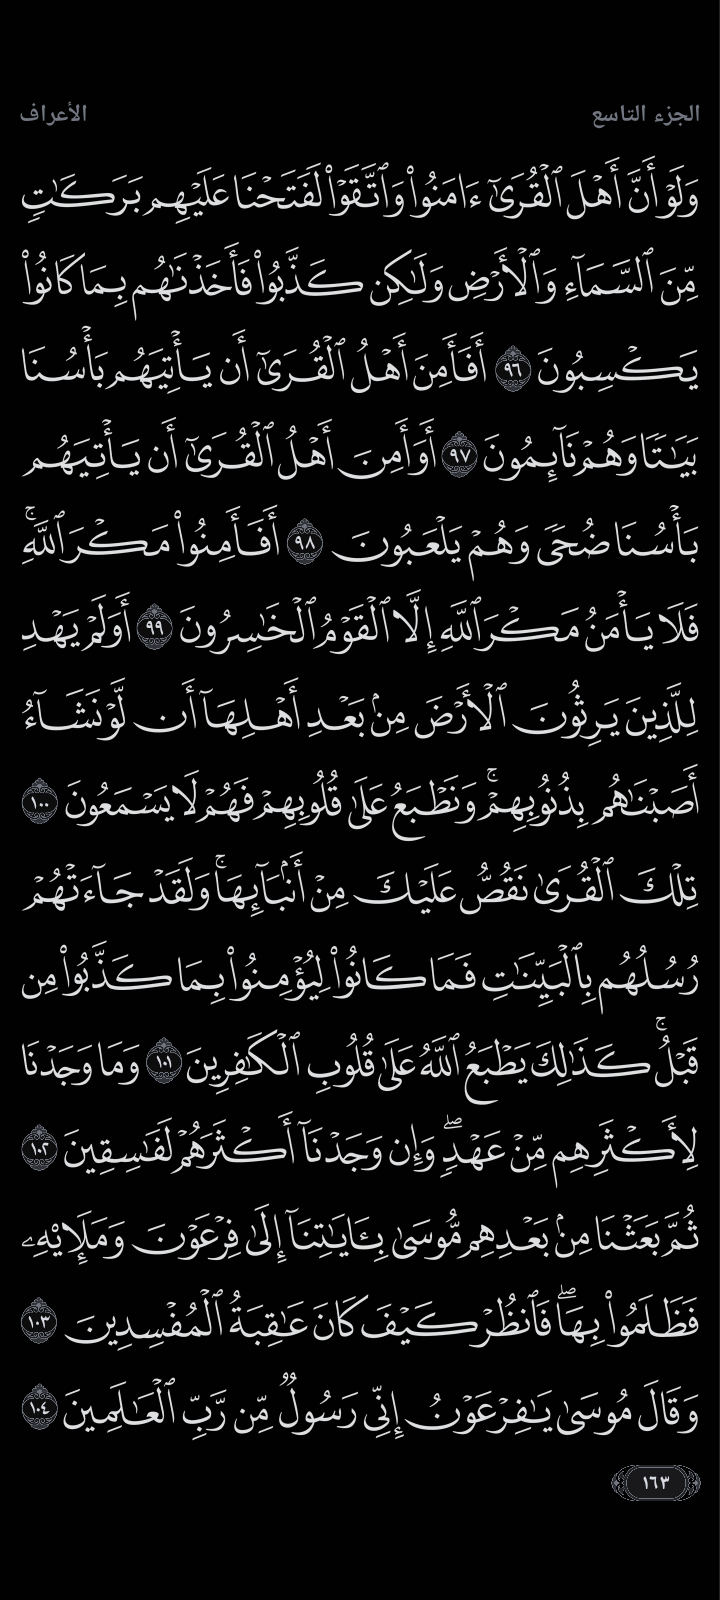 الجزء التاسع
الأعراف
وَلَوْ أَنَّ أَهْلَ ٱلْقُرَىٰٓ ءَامَنُوا۟ وَٱتَّقَوْا۟ لَفَتَحْنَا عَلَيْهِم بَرَكَـٰتٍ
مِّنَ ٱلسَّمَآءِ وَٱلْأَرْضِ وَلَـٰكِن كَذَّبُوا۟ فَأَخَذْنَـٰهُم بِمَا كَانُوا۟
يَكْسِبُونَ ٩٦ أَفَأَمِنَ أَهْلُ ٱلْقُرَىٰٓ أَن يَأْتِيَهُم بَأْسُنَا
بَيَـٰتًا وَهُمْ نَآئِمُونَ ٩٧ أَوَأَمِنَ أَهْلُ ٱلْقُرَىٰٓ أَن يَأْتِيَهُم
بَأْسُنَا ضُحًى وَهُمْ يَلْعَبُونَ ٩٨ أَفَأَمِنُوا۟ مَكْرَ ٱللَّهِ ۚ
فَلَا يَأْمَنُ مَكْرَ ٱللَّهِ إِلَّا ٱلْقَوْمُ ٱلْخَـٰسِرُونَ ٩٩ أَوَلَمْ يَهْدِ
لِلَّذِينَ يَرِثُونَ ٱلْأَرْضَ مِنۢ بَعْدِ أَهْلِهَآ أَن لَّوْ نَشَآءُ
أَصَبْنَـٰهُم بِذُنُوبِهِمْ ۚ وَنَطْبَعُ عَلَىٰ قُلُوبِهِمْ فَهُمْ لَا يَسْمَعُونَ ١٠٠
تِلْكَ ٱلْقُرَىٰ نَقُصُّ عَلَيْكَ مِنْ أَنۢبَآئِهَا ۚ وَلَقَدْ جَآءَتْهُمْ
رُسُلُهُم بِٱلْبَيِّنَـٰتِ فَمَا كَانُوا۟ لِيُؤْمِنُوا۟ بِمَا كَذَّبُوا۟ مِن
قَبْلُ ۚ كَذَٰلِكَ يَطْبَعُ ٱللَّهُ عَلَىٰ قُلُوبِ ٱلْكَـٰفِرِينَ ١٠١ وَمَا وَجَدْنَا
لِأَكْثَرِهِم مِّنْ عَهْدٍ ۖ وَإِن وَجَدْنَآ أَكْثَرَهُمْ لَفَـٰسِقِينَ ١٠٢
ثُمَّ بَعَثْنَا مِنۢ بَعْدِهِم مُّوسَىٰ بِـَٔايَـٰتِنَآ إِلَىٰ فِرْعَوْنَ وَمَلَإِي۟هِۦ
فَظَلَمُوا۟ بِهَا ۖ فَٱنظُرْ كَيْفَ كَانَ عَـٰقِبَةُ ٱلْمُفْسِدِينَ ١٠٣
وَقَالَ مُوسَىٰ يَـٰفِرْعَوْنُ إِنِّى رَسُولٌ مِّن رَّبِّ ٱلْعَـٰلَمِينَ ١٠٤
١٦٣